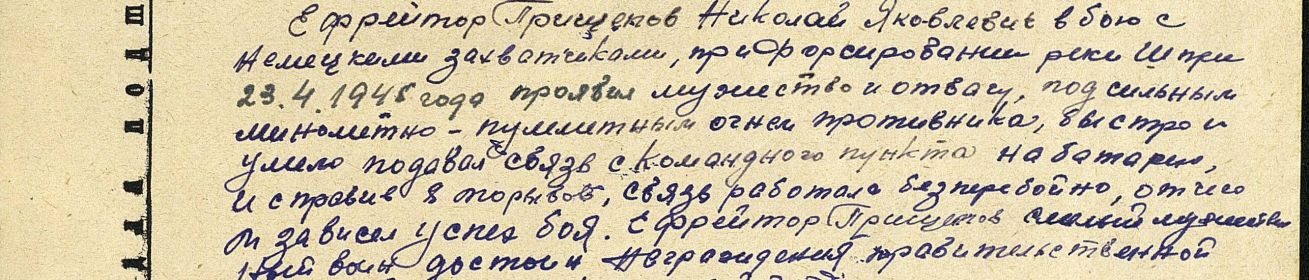 Ефрейтор Прищепов Николай Яковлевич в бою с
немецкими захватчиками, при форсировании реки Шпри
23.4.1945 года проявил мужество и отвагу, под сильным
минометно-пулиметным огнем противника, быстро и
умело подавал связь с командного пункта на батарею,
исправив 8 порывов, связь работала безперебойно, от чего
и зависел успех боя. Ефрейтор Прищепов смелый мужествен
ный воин достоин награждения правительственной